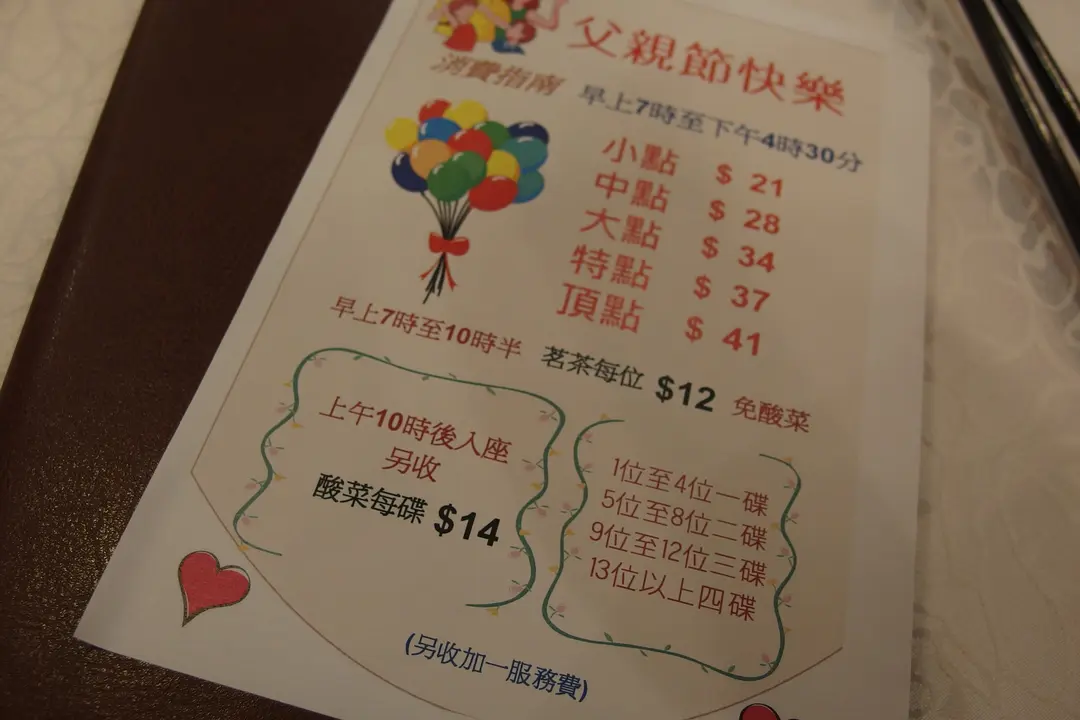 父親節快樂
消費指南
早上7時至下午4時30分
小點 $ 21
中點 $ 28
大點 $ 34
特點 $ 37
頂點 $ 41
早上7時至10時半 茗茶每位 $12 免酸菜
上午10時後入座
另收
酸菜每碟 $14
1位至4位一碟
5位至8位二碟
9位至12位三碟
13位以上四碟
(另收加一服務費)